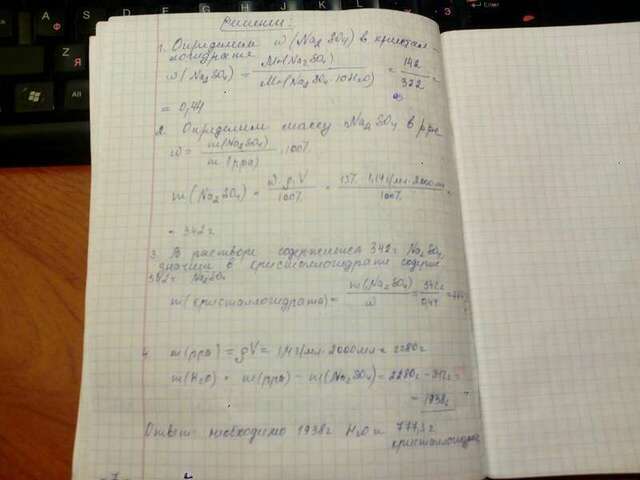 Решение:
1. Определим w (Na2SO4) в кристал-
логидрате
w(Na2SO4) = Mr(Na2SO4) / Mr(Na2SO4·10H2O) = 142 / 322 =
= 0,44
2. Определим массу Na2SO4 в р-ре
w = m(Na2SO4) / m(р-ра) · 100%
m(Na2SO4) = w·ρ·V / 100% = 15%·1,14г/мл·2000мл / 100% =
= 342г
3. В растворе содержится 342г Na2SO4,
значит в кристаллогидрате содерж
342г Na2SO4
m(кристаллогидрата) = m(Na2SO4) / w = 342г / 0,44 =
4. m(р-ра) = ρV = 1,14г/мл·2000мл = 2280г
m(H2O) = m(р-ра) - m(Na2SO4) = 2280г - 342г =
= 1938г
Ответ: необходимо 1938г H2O и 777,3г
кристаллогидрата